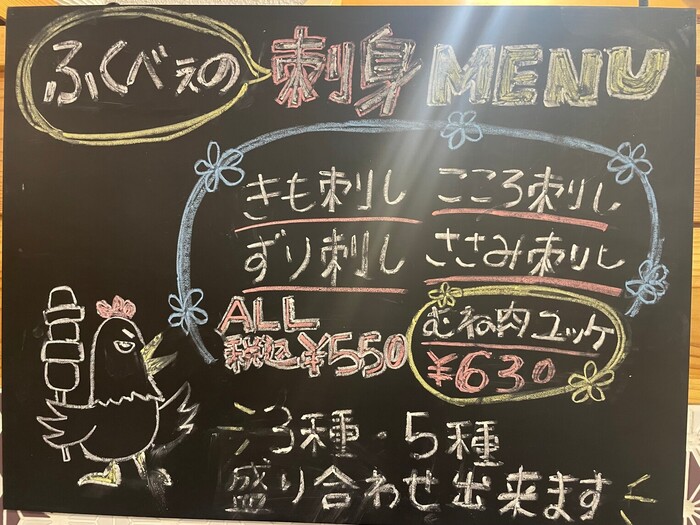 ふくべぇの 刺身 MENU
きも刺し こころ刺し
ずり刺し ささみ刺し
ALL
税込¥550
むね肉ユッケ
¥630
3種・5種
盛り合わせ出来ます